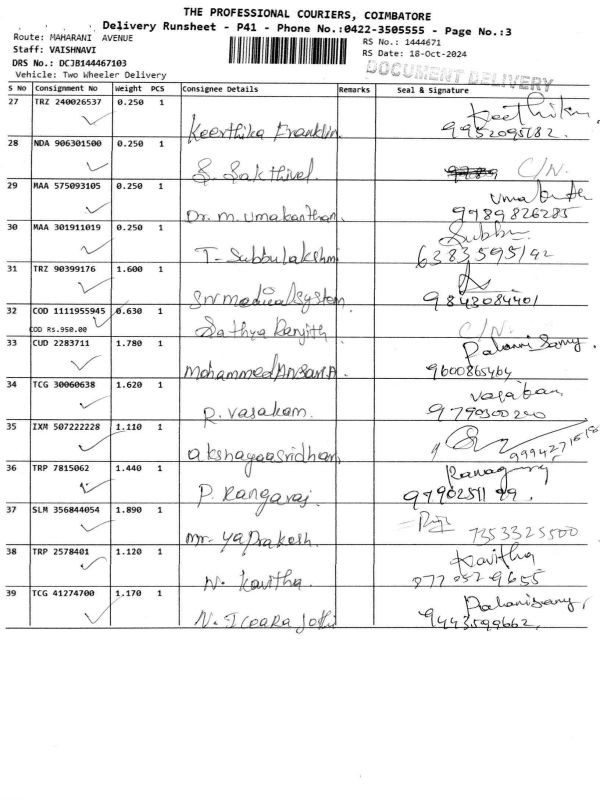 THE PROFESSIONAL COURIERS, COIMBATORE
Delivery Runsheet - P41 - Phone No.:0422-3505555 - Page No.:3
Route: MAHARANI AVENUE
RS No.: 1444671
Staff: VAISHNAVI
RS Date: 18-Oct-2024
DRS No.: DCJB144467103
DOCUMENT DELIVERY
Vehicle: Two Wheeler Delivery
S No Consignment No Weight PCS Consignee Details Remarks Seal & Signature
27 TRZ 240026537 0.250 1
Keerthika Franklin 9952095182.
28 NDA 906301500 0.250 1 C/N.
S. Sakthivel
29 MAA 575093105 0.250 1
Dr. M. Umakanthan 9789826285
30 MAA 301911019 0.250 1 Subbu
T- Subbulakshmi 6383595192
31 TRZ 90399176 1.600 1
Sri medical System 9843084401
32 COD 1111955945 0.630 1 C/N.
COD Rs.950.00 Sathya Ranjith
33 CUD 2283711 1.780 1 Palanisamy
Mohammed Ansari A 9600865464
34 TCG 30060638 1.620 1
R. Vasakam. 9790500240
35 IXM 507222228 1.110 1
akshayaasridhan
36 TRP 7815062 1.440 1
P. Rangaraj. 9790251199.
37 SLM 356844054 1.890 1
Mr- Yaprakash. 7353325500
38 TRP 2578401 1.120 1 Kavitha
N. Kavitha.
39 TCG 41274700 1.170 1 Palanisamy
N. 9443599662.